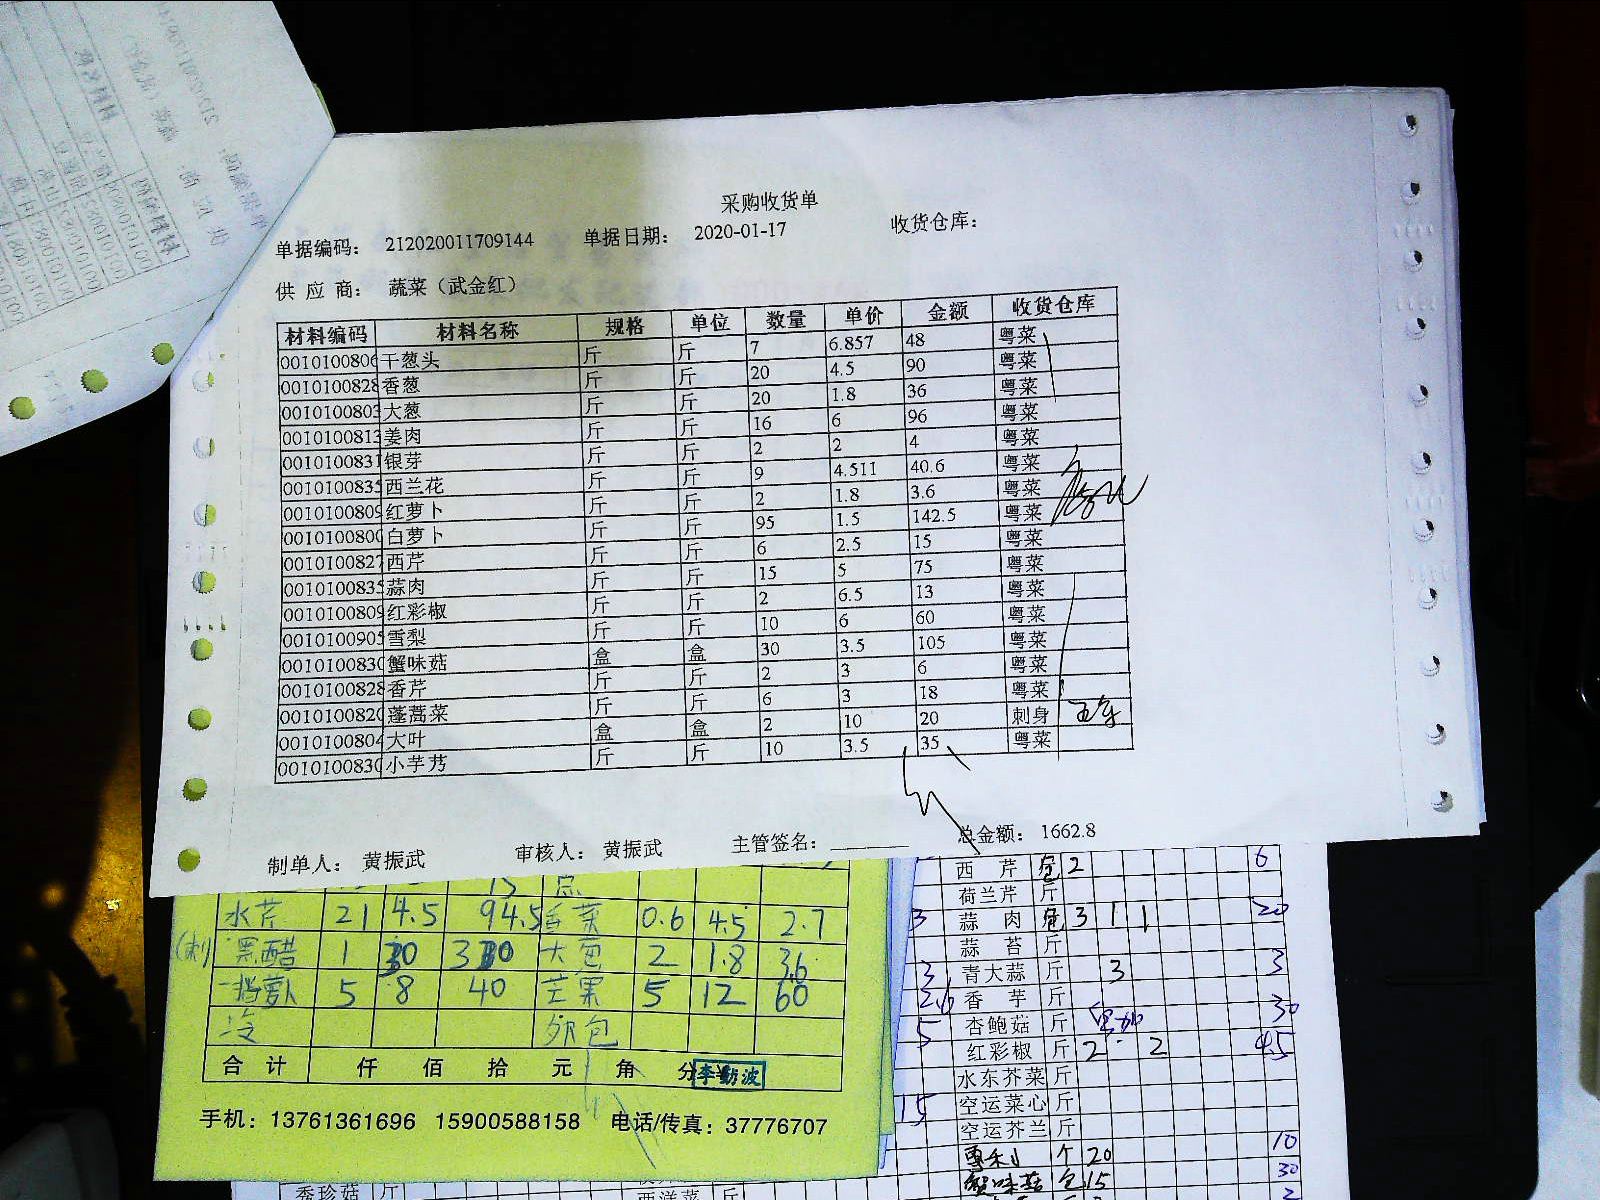 采购收货单
单据编码： 212020011709144 单据日期： 2020-01-17 收货仓库：
供 应 商： 蔬菜（武金红）
材料编码 材料名称 规格 单位 数量 单价 金额 收货仓库
0010100806 干葱头 斤 斤 7 6.857 48 粤菜
0010100828 香葱 斤 斤 20 4.5 90 粤菜
0010100803 大葱 斤 斤 20 1.8 36 粤菜
0010100813 姜肉 斤 斤 16 6 96 粤菜
0010100831 银芽 斤 斤 2 2 4 粤菜
0010100835 西兰花 斤 斤 9 4.511 40.6 粤菜
0010100809 红萝卜 斤 斤 2 1.8 3.6 粤菜
0010100800 白萝卜 斤 斤 95 1.5 142.5 粤菜
0010100827 西芹 斤 斤 6 2.5 15 粤菜
0010100835 蒜肉 斤 斤 15 5 75 粤菜
0010100809 红彩椒 斤 斤 2 6.5 13 粤菜
0010100905 雪梨 斤 斤 10 6 60 粤菜
0010100830 蟹味菇 盒 盒 30 3.5 105 粤菜
0010100828 香芹 斤 斤 2 3 6 粤菜
0010100820 蓬蒿菜 斤 斤 6 3 18 粤菜
0010100804 大叶 盒 盒 2 10 20 刺身
0010100830 小芋艿 斤 斤 10 3.5 35 粤菜
制单人： 黄振武 审核人： 黄振武 主管签名： 总金额： 1662.8
水芹 21 4.5 94.5 香菜 0.6 4.5 2.7
黑醋 1 30 大葱 2 1.8 3.6
5 8 40 芒果 5 12 60
冷 卯包
合 计 仟 佰 拾 元 角 分 李勤波
手机：13761361696 15900588158 电话/传真：37776707
西 芹 2 6
荷兰芹 斤
3 蒜 肉 3 1 1 20
蒜 苔 斤
3 青大蒜 斤 3 3
2.6 香 芋 斤
5 杏鲍菇 斤 30
红彩椒 斤 2 2 4.5
水东芥菜 斤
15 空运菜心 斤
空运芥兰 斤
个 20 10
蟹味菇 包 15 30
秀珍菇 斤 西洋菜 斤